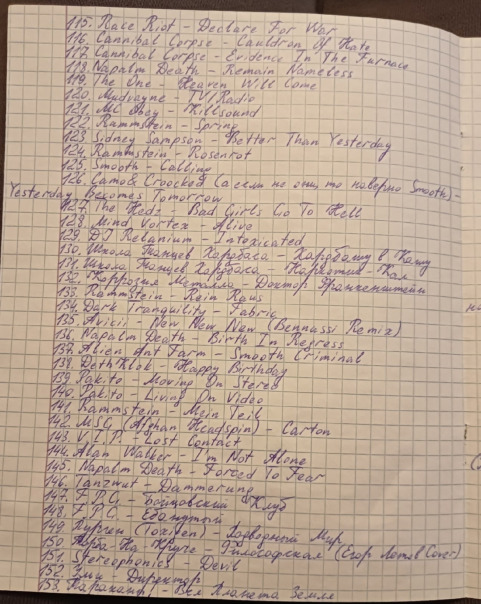 115. Race Riot - Declare For War
116. Cannibal Corpse - Cauldron Of Hate
117. Cannibal Corpse - Evidence In The Furnace
118. Napalm Death - Remain Nameless
119. The One - Heaven Will Come
120. Mudvayne - TV Radio
121. MC Obey - Killsound
122. Rammstein - Spring
123. Sidney Sampson - Better Than Yesterday
124. Rammstein - Rosenrot
125. Smooth - Calling
126. Camo & Croocked (а если не они, то наверно Smooth) -
Yesterday Becomes Tomorrow
127. The Hedz - Bad Girls Go To Hell
128. Mind Vortex - Alive
129. DJ Relanium - Intoxicated
130. Школа Танцев Карабаса - Карабашу в Кашу
131. Школа Танцев Карабаса - Наркотик - Кал
132. Коррозия Металла - Доктор Франкенштейн
133. Rammstein - Rein Raus
134. Dark Tranquility - Fabric
135. Avicii - New New New (Bennassi Remix)
136. Napalm Death - Birth In Regress
137. Alien Ant Farm - Smooth Criminal
138. Dethklok - Happy Birthday
139. Pakito - Moving On Stereo
140. Pakito - Living On Video
141. Rammstein - Mein Teil
142. MSG (Afghan Headspin) - Carton
143. V.I.P. - Lost Contact
144. Alan Walker - I'm Not Alone
145. Napalm Death - Forced To Fear
146. Tanzwut - Dammerung
147. F.P.G. - Бойцовский Клуб
148. F.P.G. - Ебанутый
149. Пурген (Toxigen) - Подводный Мир
150. - На - Круче - Философская (Егор Летов Cover)
151. Stereophonics - Devil
152. Змы - Директор
153. - Вся Планета Земля